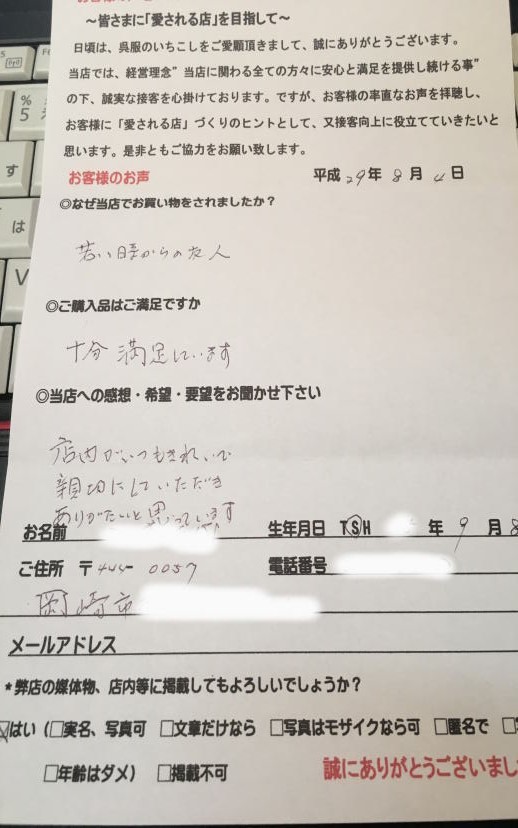 ～皆さまに「愛される店」を目指して～
日頃は、呉服のいちこしをご愛願頂きまして、誠にありがとうございます。
当店では、経営理念”当店に関わる全ての方々に安心と満足を提供し続ける事”
の下、誠実な接客を心掛けております。ですが、お客様の率直なお声を拝聴し、
お客様に「愛される店」づくりのヒントとして、又接客向上に役立てていきたいと
思います。是非ともご協力をお願い致します。
お客様のお声 平成29年 8月 4日
◎なぜ当店でお買い物をされましたか？
若い時からの友人
◎ご購入品はご満足ですか
十分 満足しています
◎当店への感想・希望・要望をお聞かせ下さい
店内がいつもきれいで
親切にしていただき
ありがたいと思っています
お名前 生年月日 T S H 年 9月 8
ご住所 〒444-0057 電話番号
岡崎市
メールアドレス
*弊店の媒体物、店内等に掲載してもよろしいでしょうか？
☑はい（□実名、写真可 □文章だけなら □写真はモザイクなら可 □匿名で □
□年齢はダメ） □掲載不可
誠にありがとうございまし
5 % 5 す は V